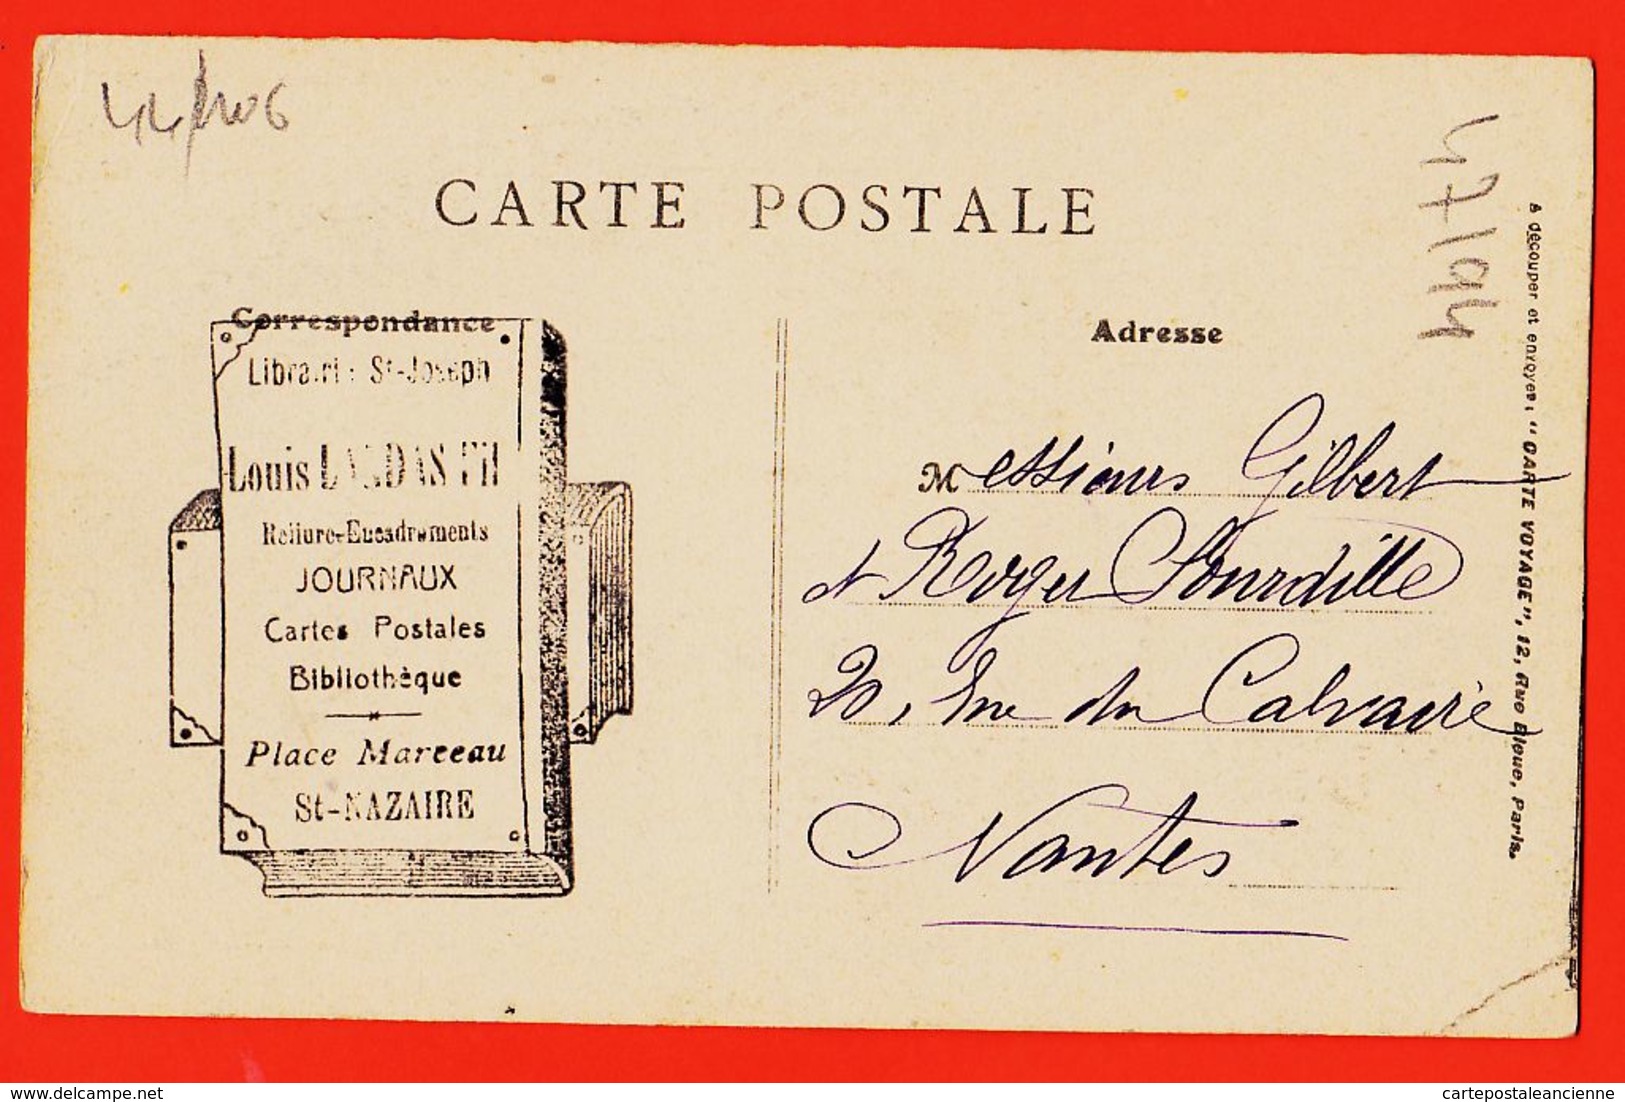 CARTE POSTALE
Correspondance
St-Joseph
Louis
Reliure-Encadrements
JOURNAUX
Cartes Postales
Bibliothèque
Place Marceau
St-NAZAIRE
Adresse
Messieurs Gilbert
et Roger Sourdille
20, Rue du Calvaire
Nantes
47/94
A découper et envoyer: "CARTE VOYAGE", 12, Rue Bleue, Paris.
delcampe.net
cartepostaleancienne